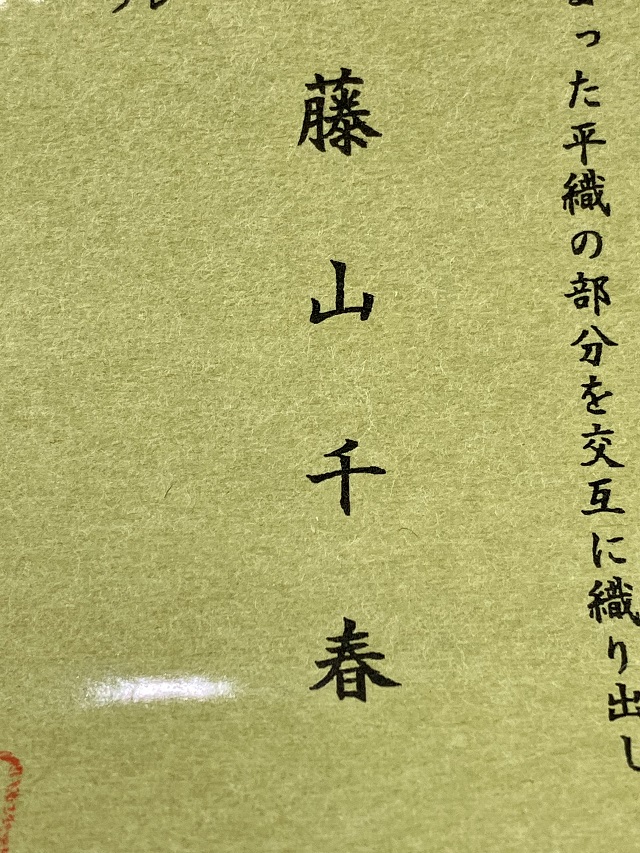 った平織の部分を交互に織り出し
藤山千春